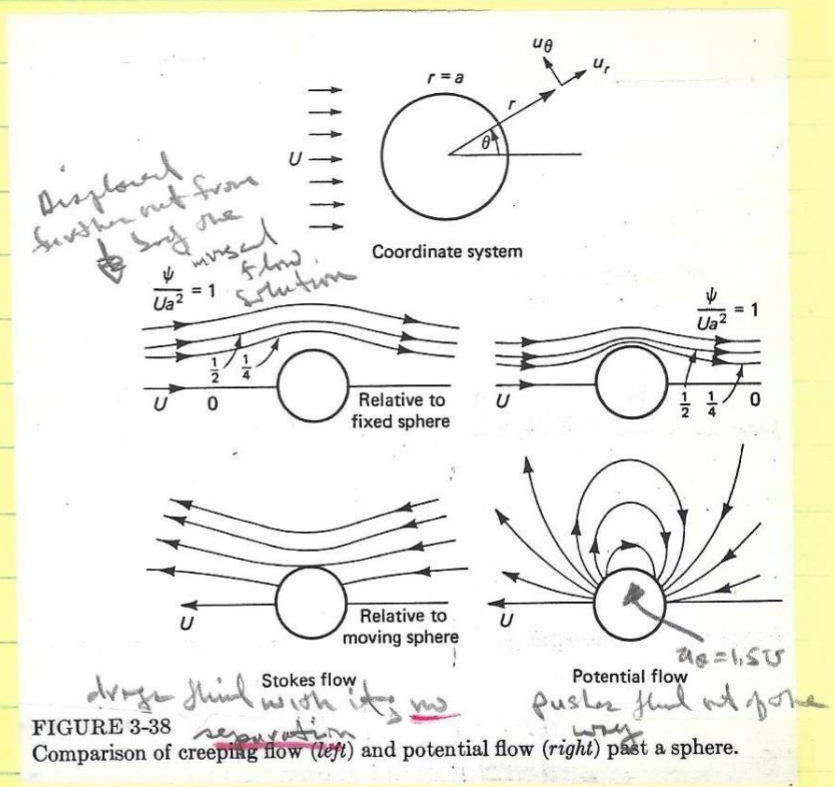 uθ
uᵣ
r = a
r
θ
U
Displaced
further out from
the
inviscid
flow
solution
Coordinate system
ψ/Ua² = 1
ψ/Ua² = 1
1/2 1/4
U 0
Relative to
fixed sphere
U
1/2 1/4 0
U
Relative to
moving sphere
U
uθ = 1.5U
Stokes flow
Potential flow
drags fluid with it; no
separation
pushes fluid out of the
way
FIGURE 3-38
Comparison of creeping flow (left) and potential flow (right) past a sphere.